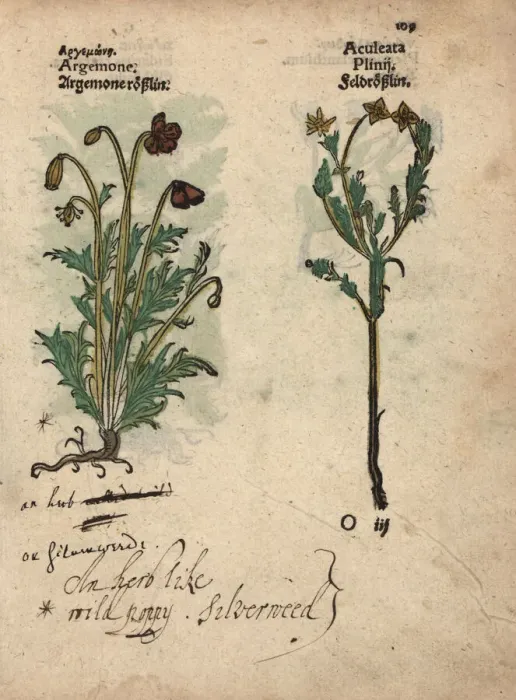 109
Αργεμώνη.
Argemone.
Argemone rößlin.
Aculeata
Plinij.
Feldrößlin.
an herb
or Silverwerd.
An herb like
* wild poppy . Silverweed
O iij